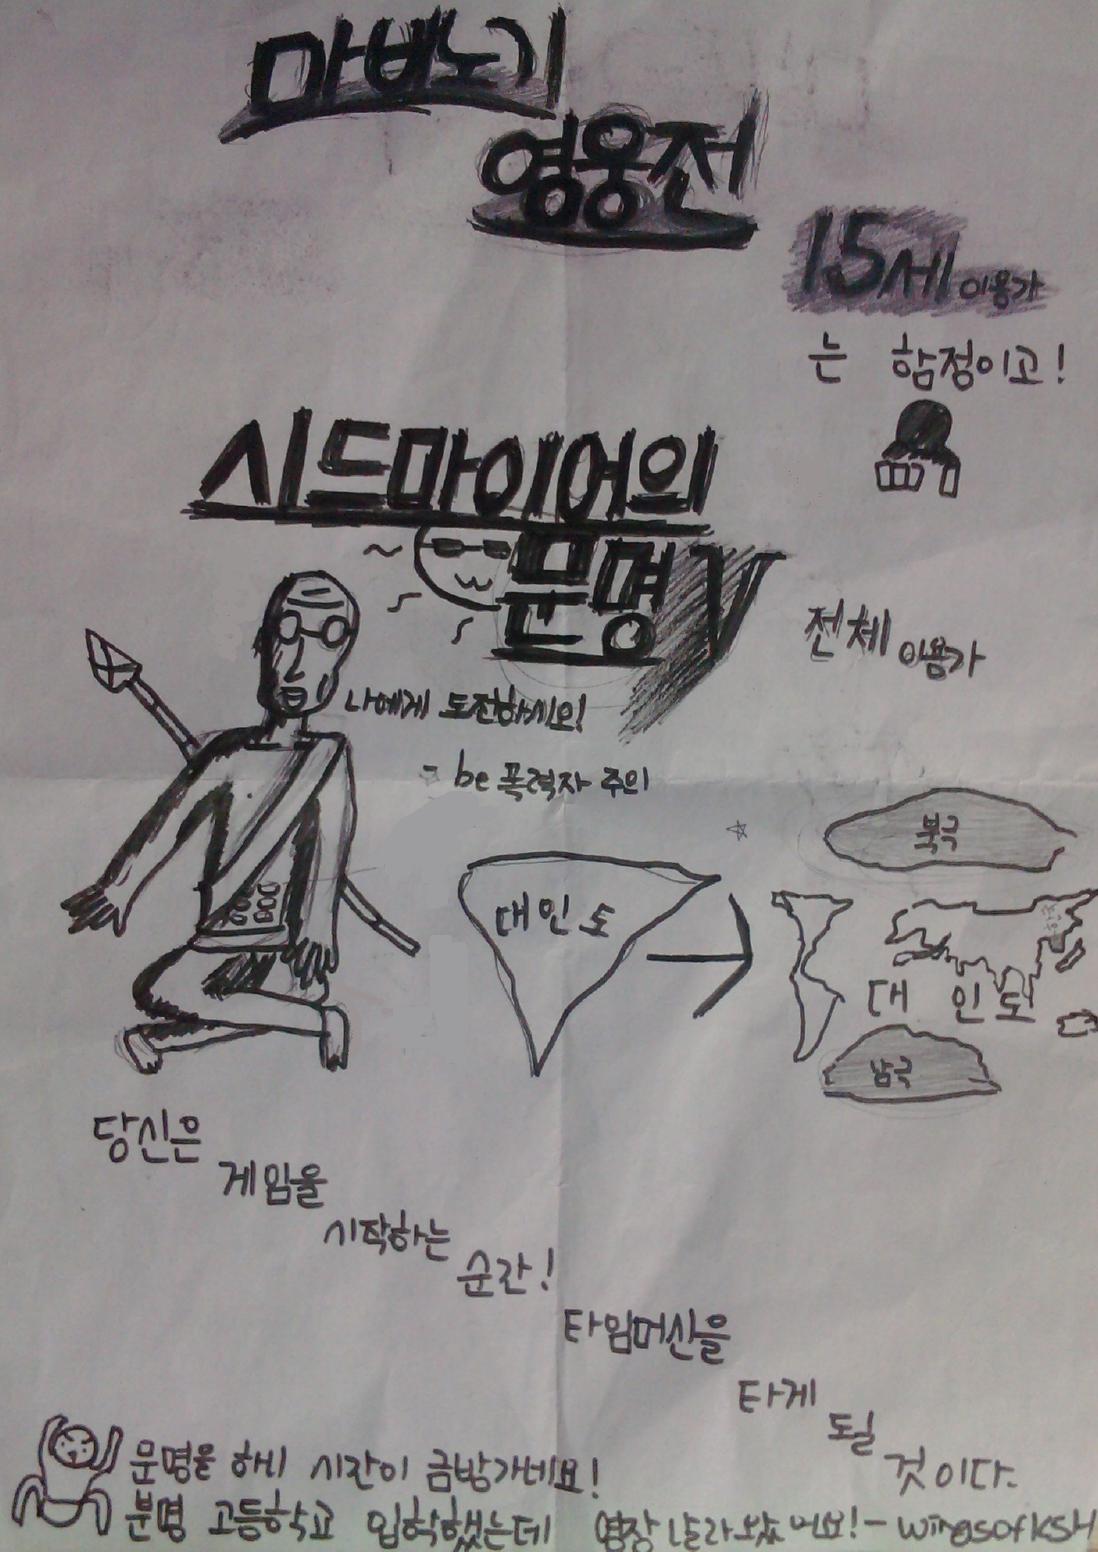 마비노기
영웅전
15세 이용가
는 함정이고!
시드마이어의
문명 V
전체 이용가
나에게 도전하세요!
- be 폭력자 주의
북극
대인도
대 인 도
남극
당신은
게임을
시작하는
순간!
타임머신을
타게
될
것이다.
문명을 하니 시간이 금방가네요!
분명 고등학교 입학했는데 영장 날라왔어요! - wingsofksh